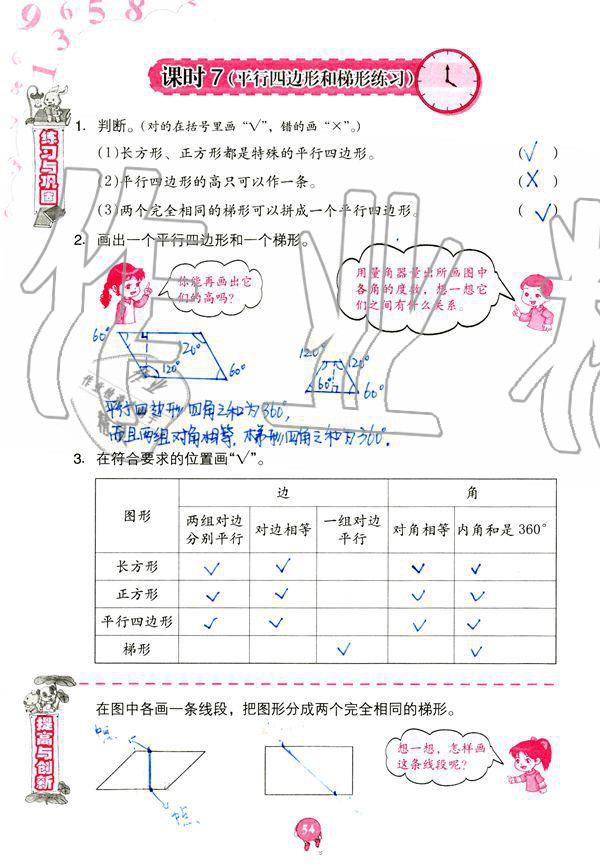 9 6 5 8
3
5
8
1
课时 7(平行四边形和梯形练习)
练习与巩固
1. 判断。(对的在括号里画“√”，错的画“×”。)
(1)长方形、正方形都是特殊的平行四边形。 (√)
(2)平行四边形的高只可以作一条。 (X)
(3)两个完全相同的梯形可以拼成一个平行四边形。 (√)
2. 画出一个平行四边形和一个梯形。
你能再画出它
们的高吗?
用量角器量出所画图中
各角的度数，想一想它
们之间有什么关系。
60° 120° 120° 60°
120° 120° 60° 60°
平行四边形四角之和为360°,
而且两组对角相等, 梯形四角之和为360°.
3. 在符合要求的位置画“√”。
图形 边 角
两组对边分别平行 对边相等 一组对边平行 对角相等 内角和是360°
长方形 √ √ √ √
正方形 √ √ √ √
平行四边形 √ √ √ √
梯形 √ √
提高与创新
在图中各画一条线段，把图形分成两个完全相同的梯形。
中点
中点
想一想，怎样画
这条线段呢?
54
作业精